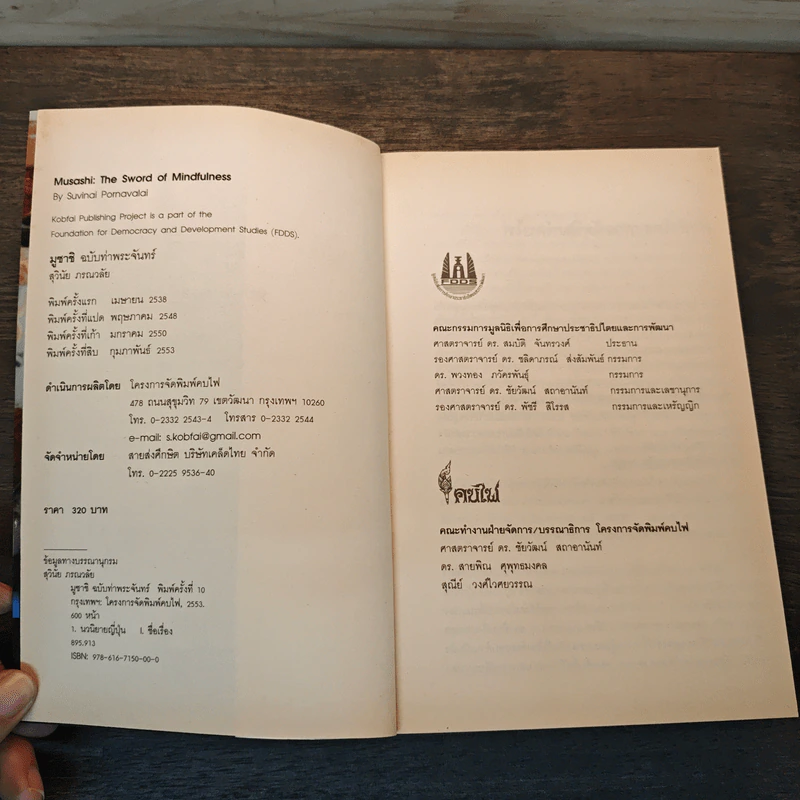 Musashi: The Sword of Mindfulness
By Suvinai Pornavalai
Kobfai Publishing Project is a part of the
Foundation for Democracy and Development Studies (FDDS).
มูซาชิ ฉบับท่าพระจันทร์
สุวินัย ภรณวลัย
พิมพ์ครั้งแรก เมษายน 2538
พิมพ์ครั้งที่แปด พฤษภาคม 2548
พิมพ์ครั้งที่เก้า มกราคม 2550
พิมพ์ครั้งที่สิบ กุมภาพันธ์ 2553
ดำเนินการผลิตโดย โครงการจัดพิมพ์คบไฟ
478 ถนนสุขุมวิท 79 เขตวัฒนา กรุงเทพฯ 10260
โทร. 0-2332 2543-4 โทรสาร 0-2332 2544
e-mail: s.kobfai@gmail.com
จัดจำหน่ายโดย สายส่งศึกษิต บริษัทเคล็ดไทย จำกัด
โทร. 0-2225 9536-40
ราคา 320 บาท
ข้อมูลทางบรรณานุกรม
สุวินัย ภรณวลัย
มูซาชิ ฉบับท่าพระจันทร์ พิมพ์ครั้งที่ 10
กรุงเทพฯ: โครงการจัดพิมพ์คบไฟ, 2553.
600 หน้า
1. นวนิยายญี่ปุ่น I. ชื่อเรื่อง
895.913
ISBN: 978-616-7150-00-0
FDDS
คณะกรรมการมูลนิธิเพื่อการศึกษาประชาธิปไตยและการพัฒนา
ศาสตราจารย์ ดร. สมบัติ จันทรวงศ์ ประธาน
รองศาสตราจารย์ ดร. ชลิดาภรณ์ ส่งสัมพันธ์ กรรมการ
ดร. พวงทอง ภวัครพันธุ์ กรรมการ
ศาสตราจารย์ ดร. ชัยวัฒน์ สถาอานันท์ กรรมการและเลขานุการ
รองศาสตราจารย์ ดร. พัชรี สิโรรส กรรมการและเหรัญญิก
คบไฟ
คณะทำงานฝ่ายจัดการ/บรรณาธิการ โครงการจัดพิมพ์คบไฟ
ศาสตราจารย์ ดร. ชัยวัฒน์ สถาอานันท์
ดร. สายพิณ ศุพุทธมงคล
สุณีย์ วงศ์ไวศยวรรณ